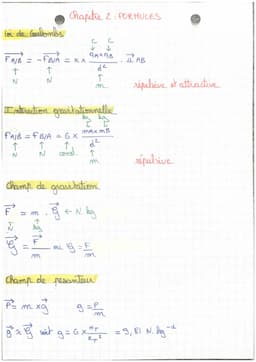 Chapitre 2 : FORMULES
Loi de Coulombs
C C
F A/B = - F B/A = K x qA x qB / d² . u AB
↑ ↑ ↑
N N m
répulsive et attractive
Interaction gravitationnelle
kg kg
F A/B = F B/A = G x mA x mB / d²
↑ ↑ ↑ ↑
N N const. m
répulsive
Champ de gravitation
F = m . G ← N.kg
N kg
G = F / m ou G = F / m
Champ de pesanteur
P = m x g g = P / m
g ≈ G soit g = G x mT / RT² = 9,81 N.kg⁻¹